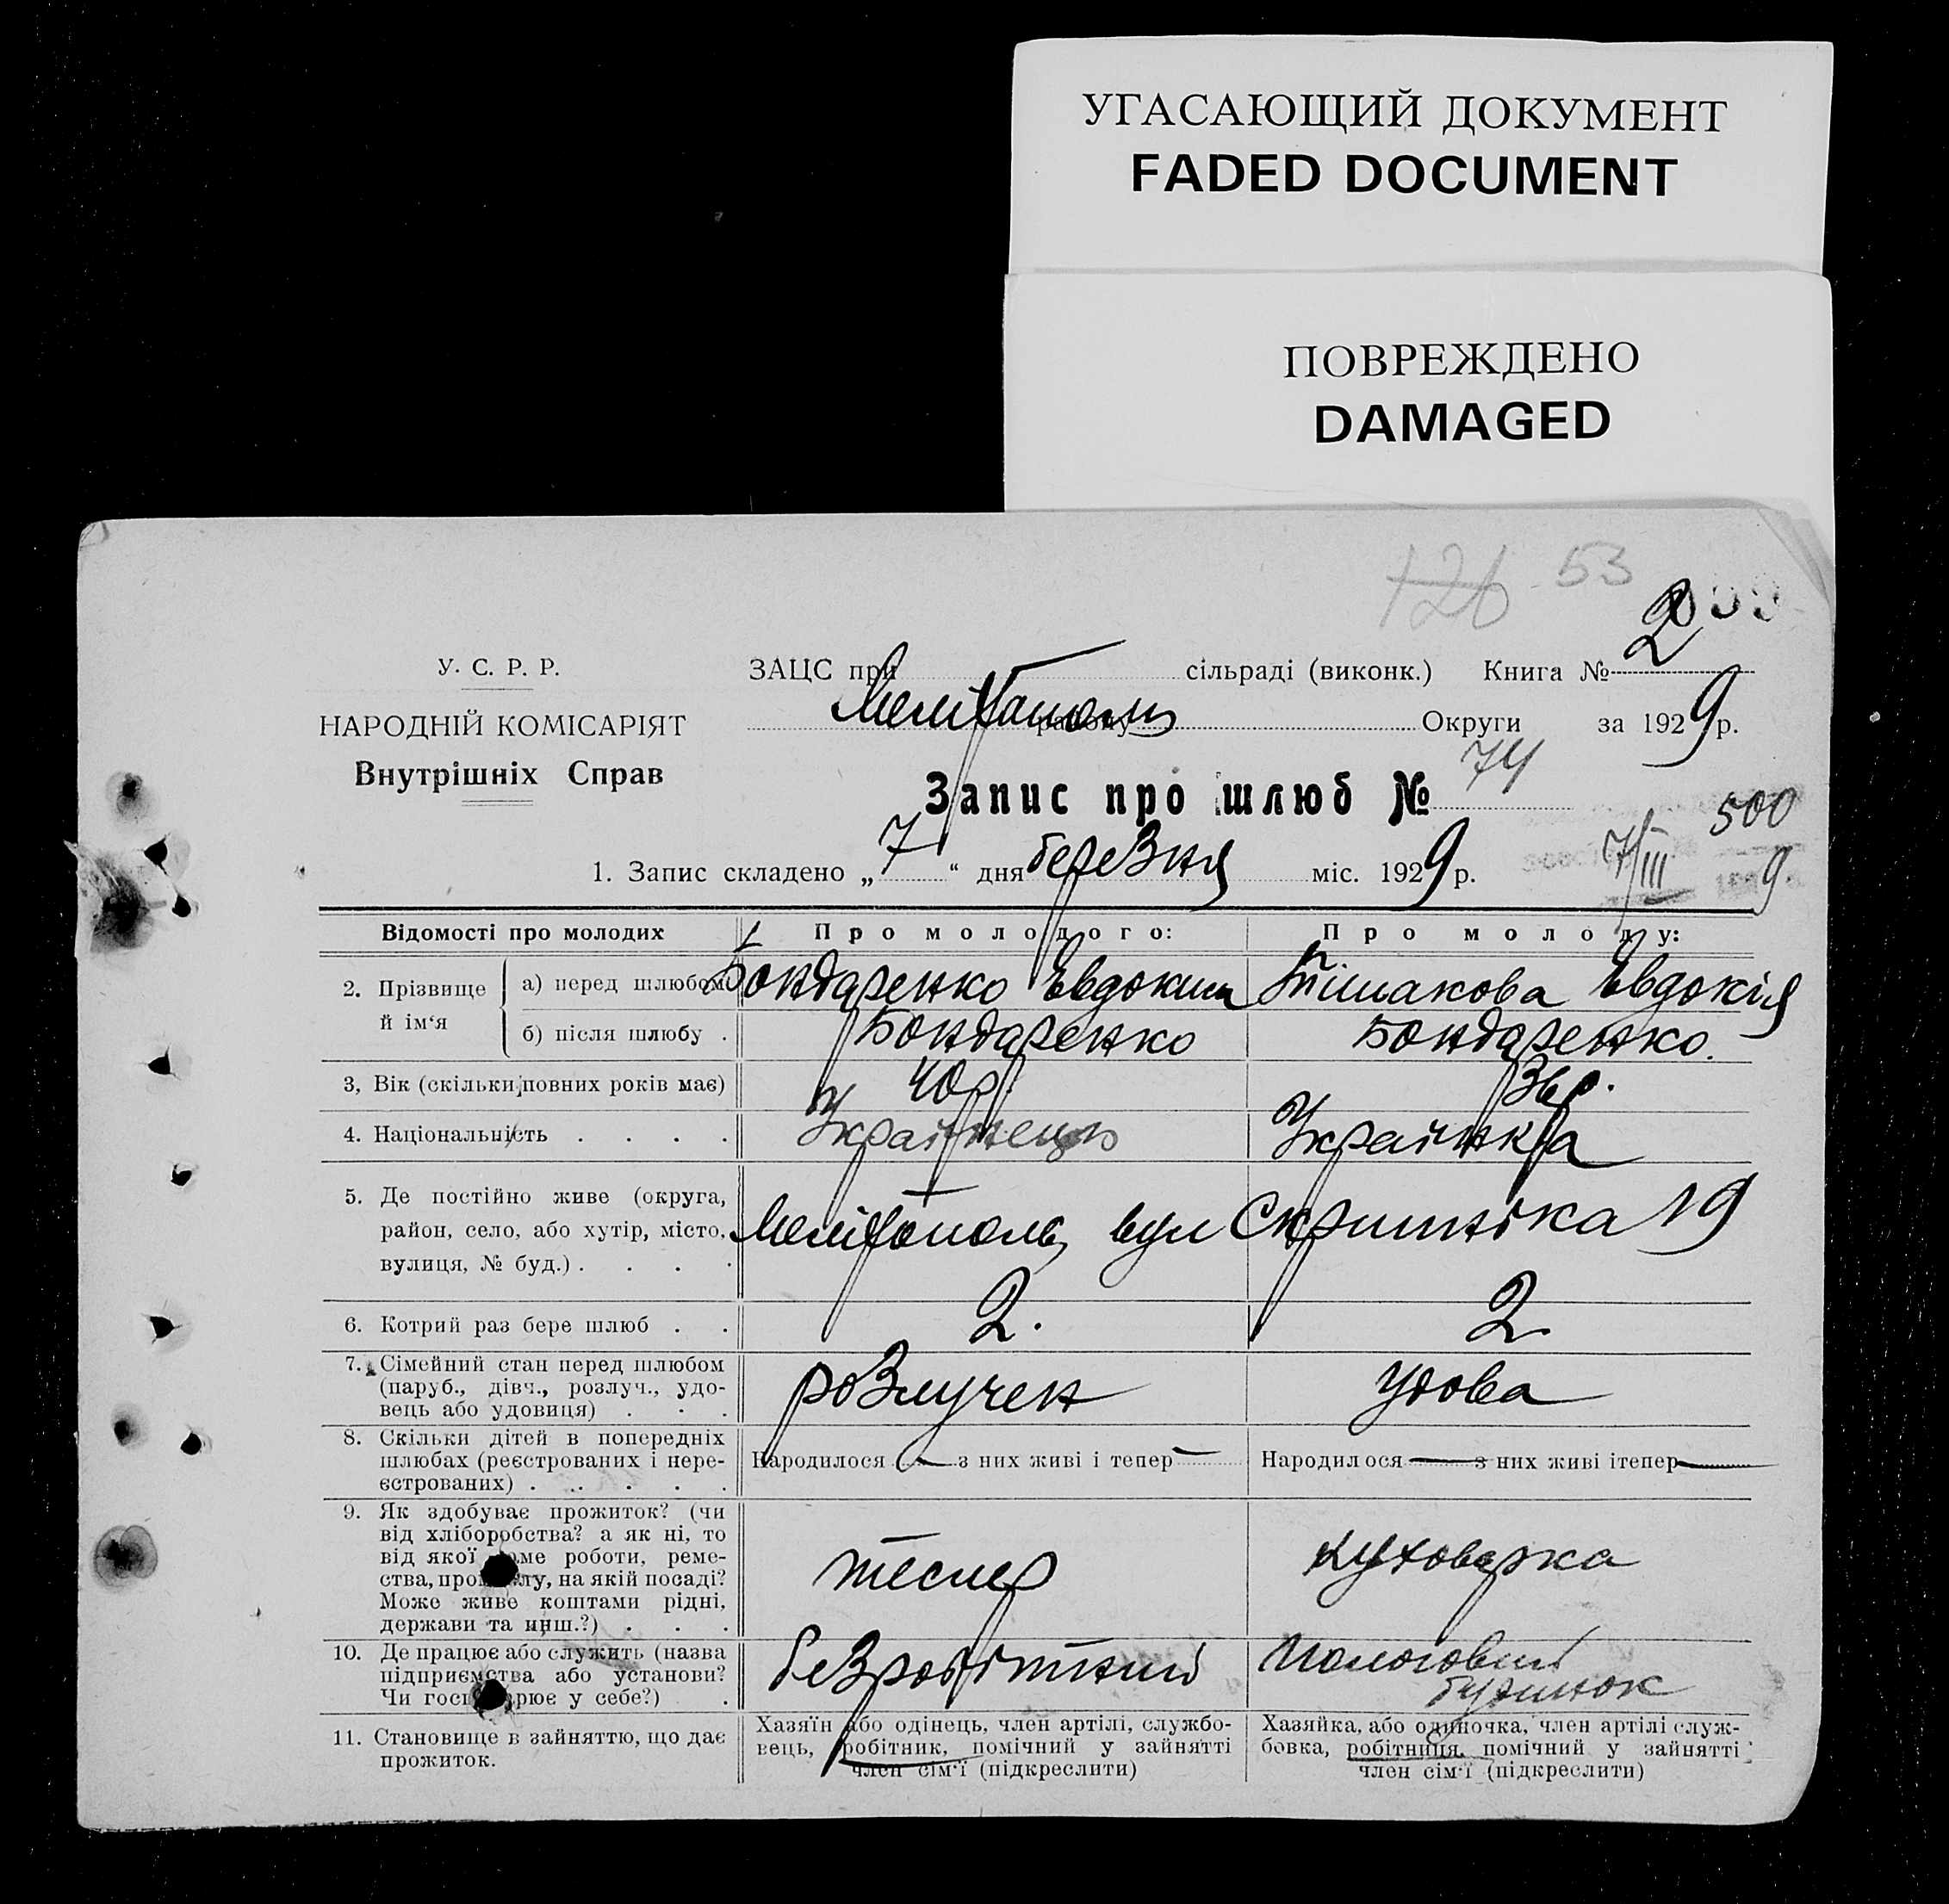 УГАСАЮЩИЙ ДОКУМЕНТ
FADED DOCUMENT
ПОВРЕЖДЕНО
DAMAGED
126 53
У. С. Р. Р.
ЗАЦС при сільраді (виконк.) Книга № 2
НАРОДНІЙ КОМІСАРІЯТ
Мелітополь району Округи за 1929 р.
Внутрішніх Справ
Запис про шлюб № 74
500
1. Запис складено „7“ дня березня міс. 1929 р.
7/III 9.
Відомості про молодих
Про молодого:
Про молоду:
2. Прізвище й ім‘я
а) перед шлюбом
Бондаренко Євдоким
Євдокія
б) після шлюбу .
Бондаренко
Бондаренко.
3, Вік (скільки повних років має)
40 р.
36 р.
4. Національність . . . .
Українець
Українка
5. Де постійно живе (округа,
район, село, або хутір, місто,
вулиця, № буд.) . . . .
Мелітополь, вул Скрипніка 19
6. Котрий раз бере шлюб . .
2.
2.
7. Сімейний стан перед шлюбом
(паруб., дівч., розлуч., удо-
вець або удовиця) . . .
розлучен
удова
8. Скільки дітей в попередніх
шлюбах (реєстрованих і нере-
єстрованих) . . . . .
Народилося — з них живі і тепер —
Народилося — з них живі ітепер —
9. Як здобуває прожиток? (чи
від хліборобства? а як ні, то
від якої роботи, реме-
ства, на якій посаді?
Може живе коштами рідні,
держави та инш.?) . . .
тесляр
куховарка
10. Де працює або служить (назва
підприємства або установи?
Чи у себе?) .
безробітний
Пологовий
будинок
11. Становище в зайняттю, що дає
прожиток.
Хазяїн або одінець, член артілі, службо-
вець, робітник, помічний у зайнятті
член сім‘ї (підкреслити)
Хазяйка, або одиночка, член артілі служ-
бовка, робітниця, помічний у зайнятті
член сім‘ї (підкреслити)